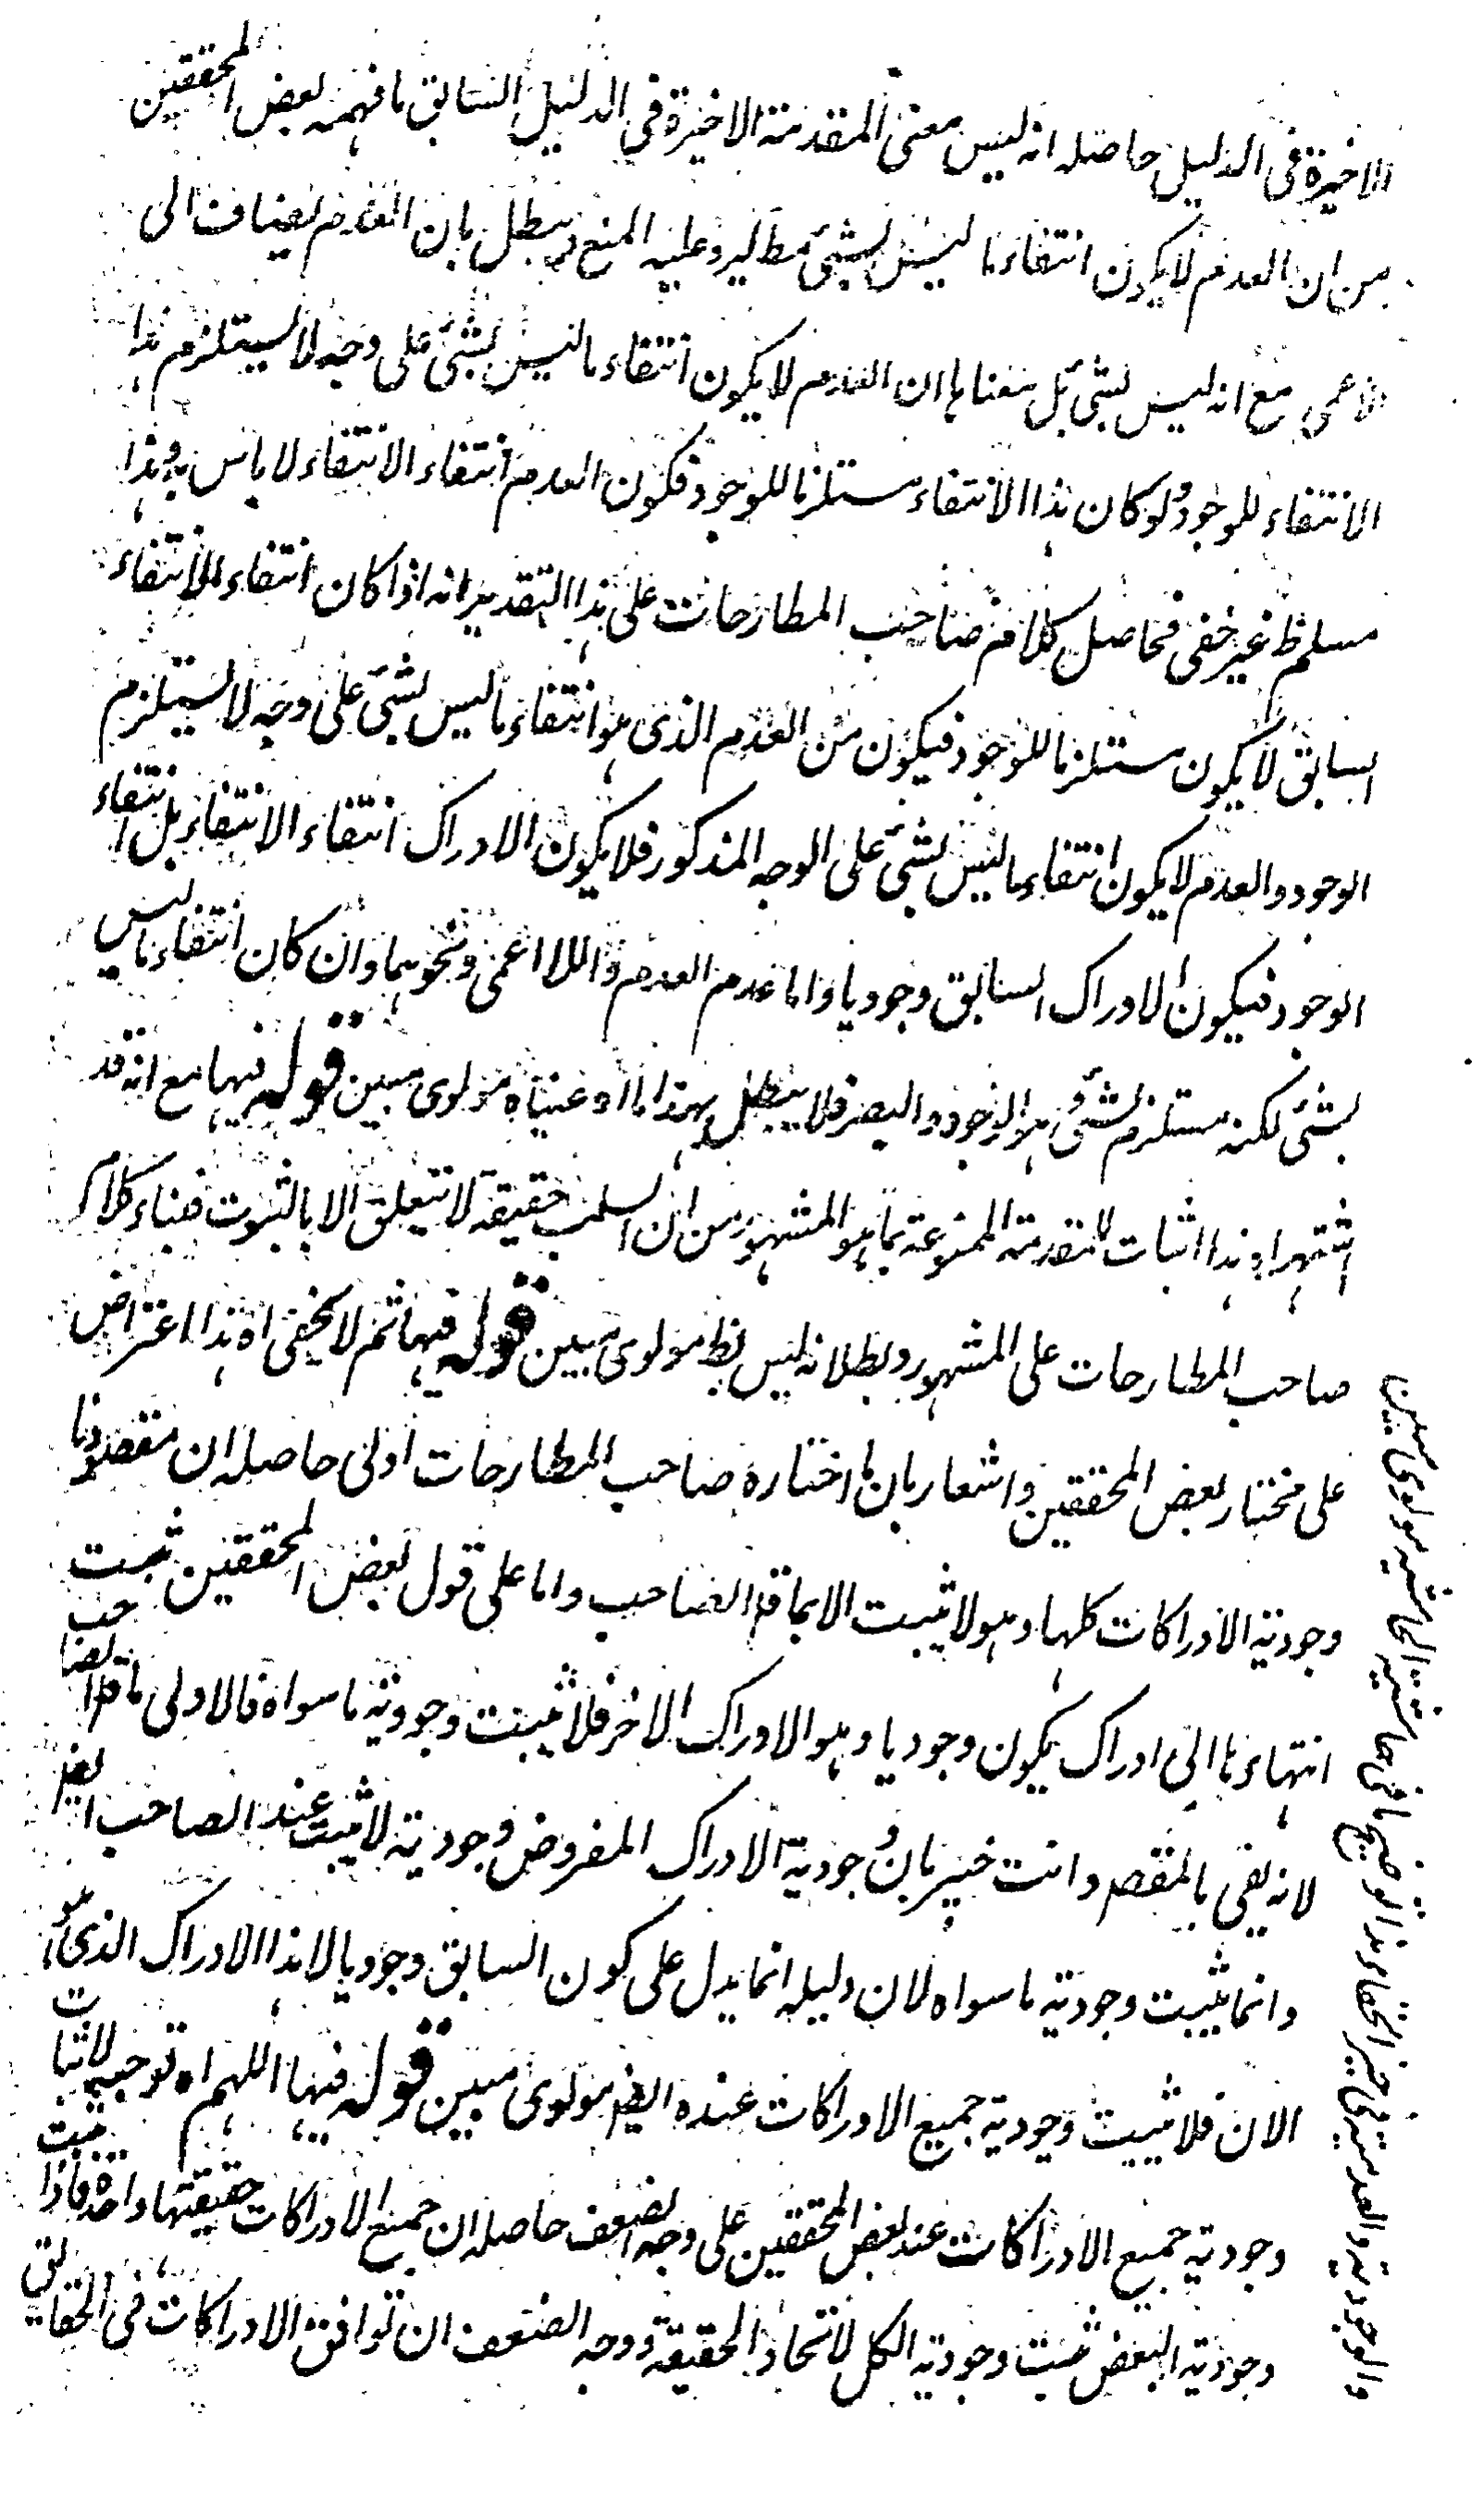 الاخيرة فى الدليل حاصله انه ليس معنى المقدمة الاخيرة فى الدليل السابق ما فهمه بعض المحققين
من ان العدم لا يكون انتفاء ما ليس بشئ مط ليرد عليه المنع و يبطل بان العدم يضاف الى
الاعمى مع انه ليس بشئ بل معناها ان العدم لا يكون انتفاء ما ليس بشئ على وجه لا يستلزم هذا
الانتفاء للوجود ولو كان هذا الانتفاء مستلزما للوجود فكون العدم انتفاء الانتفاء لا باس به وهذا
مسلم ظ غير خفى فحاصل كلام صاحب المطارحات على هذا التقدير انه اذا كان انتفاء للانتفاء
السابق لا يكون مستلزما للوجود فيكون من العدم الذى هو انتفاء ما ليس بشئ على وجه لا يستلزم
الوجود والعدم لا يكون انتفاء ما ليس بشئ على الوجه المذكور فلا يكون الادراك انتفاء الانتفاء بل انتفاء
الوجود فيكون الادراك السابق وجوديا واما عدم العدم واللااعمى ونحوهما وان كان انتفاء ما ليس
بشئ لكنه مستلزم لشئ هو الوجود والبصر فلا يبطل بهذا ما ادعيناه مولوى مبين قوله فيها مع انه قد
اشتهر اه هذا اثبات للمقدمة الممنوعة بما هو المشهور من ان السلب حقيقة لا يتعلق الا بالثبوت فبناء كلام
صاحب المطارحات على المشهور وبطلانه ليس بظ مولوى مبين قوله فيها ثم لا يخفى اه هذا اعتراض
على مختار بعض المحققين واشعار بان ما اختاره صاحب المطارحات اولى حاصله ان مقصودنا
وجودية الادراكات كلها وهو لا يثبت الا بما قال الصاحب واما على قول بعض المحققين ثبت
انتهاءها الى ادراك يكون وجوديا وهو الادراك الاخر فلا يثبت وجودية ما سواه فالاولى ما قال الصاحب
لانه يفى بالمقصد وانت خبير بان وجودية الادراك المفروض وجودية لا يثبت عند الصاحب ايض
وانما يثبت وجودية ما سواه لان دليله انما يدل على كون السابق وجوديا لا هذا الادراك الذى هو
الان فلا يثبت وجودية جميع الادراكات عنده ايض مولوى مبين قوله فيها اللهم اه توجيه لاثبات
وجودية جميع الادراكات عند بعض المحققين على وجه الضعف حاصله ان جميع الادراكات حقيقتها واحدة فاذا ثبت
وجودية البعض ثبت وجودية الكل لاتحاد الحقيقة ووجه الضعف ان توافق الادراكات فى الحقايق